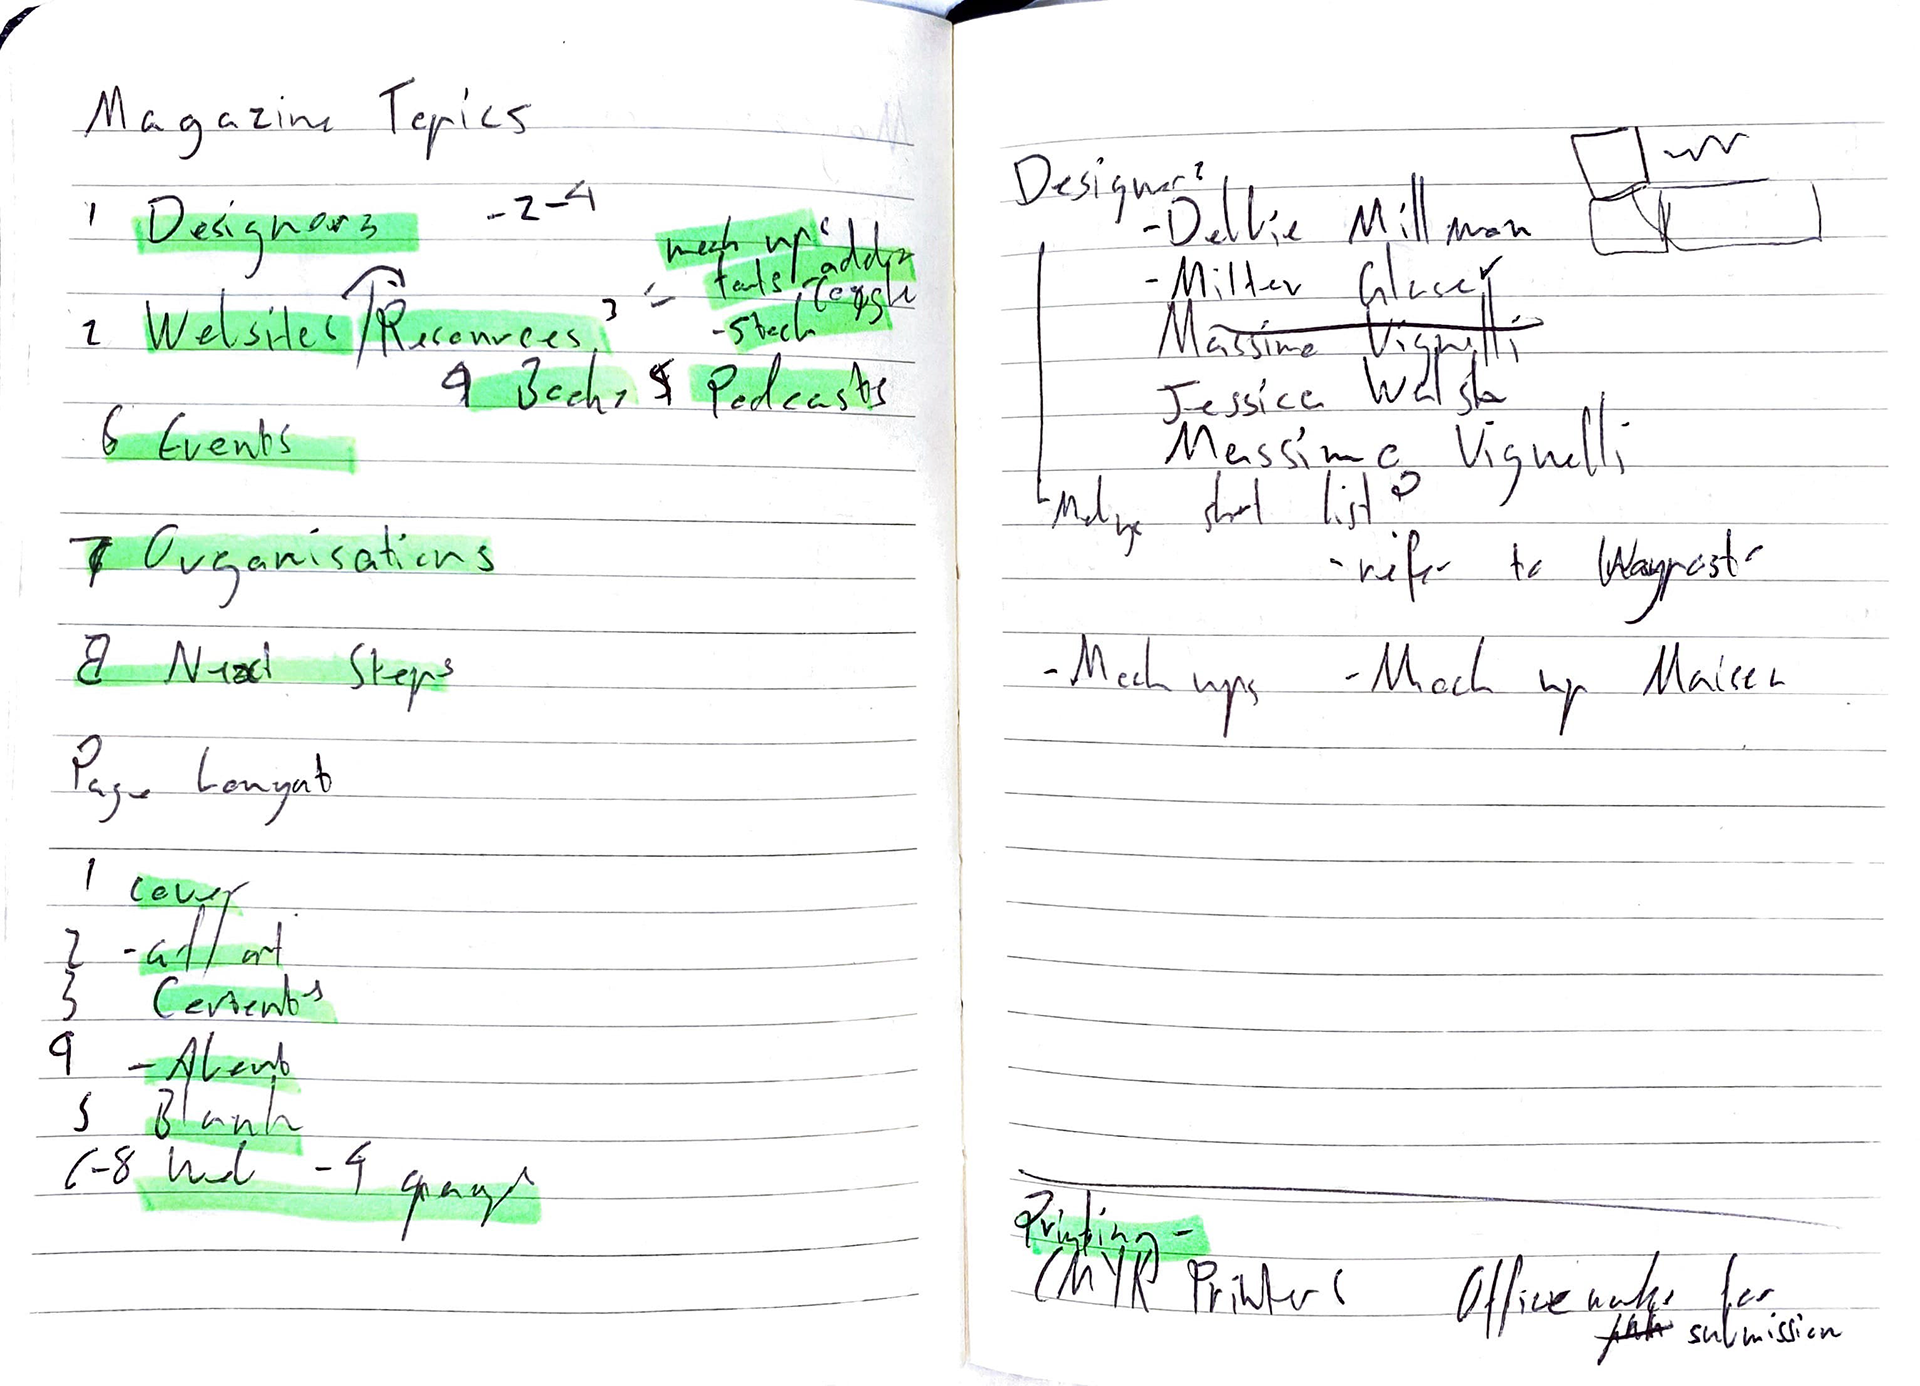 Magazine Topics
1 Designers -2-4
mock ups
fonts / adobe
2 Websites / Resources 3 - Google
- Stock
4 Books 5 Podcasts
6 Events
7 Organisations
8 Next Steps
Page Layout
1 cover
2 - ad / art
3 Contents
4 - About
5 Blank
6-8 - 4
Designers
- Debbie Millman
- Milton Glaser
Massimo Vignelli
Jessica Walsh
Massimo Vignelli
short list?
- refer to
- Mock ups - Mock up
Printing -
CMYK Printers Officeworks for
submission